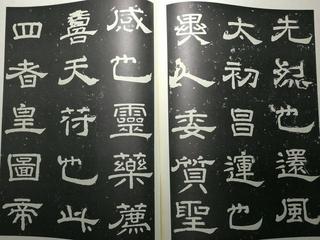 先烈也還風
大初昌運也
異人委質聖
感也靈藥薦
壽天符也此
四者皇圖帝